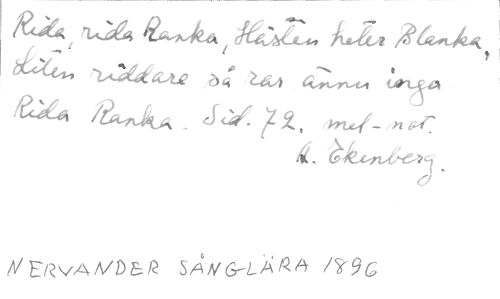 Rida, rida Ranka, Hästen heter Blanka,
Liten riddare så rar ännu inga
Rida Ranka. Sid. 72. mel-not.
A. Ekenberg.
NERVANDER SÅNGLÄRA 1896